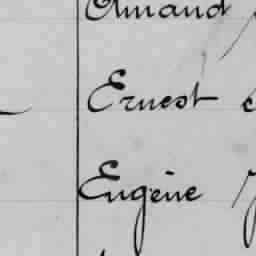 Amand
Ernest
Eugène